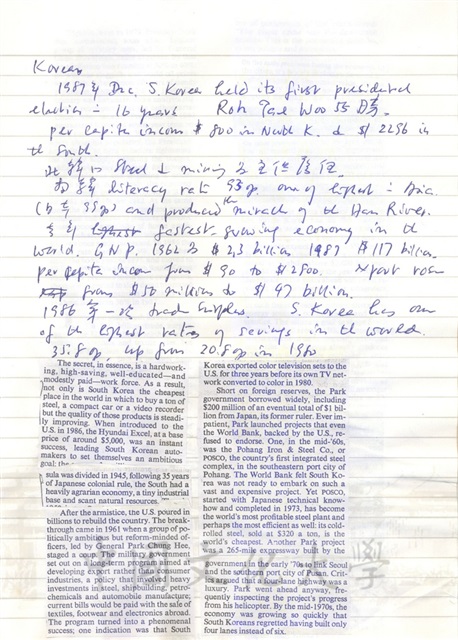 Korean
1987年 Dec. S. Korea held its first presidential
election in 16 years Roh Tae Woo 55
per capita income $ 800 in North K. & $ 2296 in
the South.
Steel & mining
literacy rate 93% one of highest in Asia.
and produced the miracle of the Han River.
fastest growing economy in the
world. G.N.P. 1962 $ 2.3 billion 1987 $ 117 billion.
per capita income from $ 90 to $ 2800. Export rose
from $ 50 million to $ 47 billion.
1986 第一次 trade surplus. S. Korea has one
of the highest rates of savings in the world.
35.8%, up from 20.8% in 1980
The secret, in essence, is a hardwork-
ing, high-saving, well-educated—and
modestly paid—work force. As a result,
not only is South Korea the cheapest
place in the world in which to buy a ton of
steel, a compact car or a video recorder
but the quality of those products is steadi-
ly improving. When introduced to the
U.S. in 1986, the Hyundai Excel, at a base
price of around $5,000, was an instant
success, leading South Korean auto-
makers to set themselves an ambitious
goal:
sula was divided in 1945, following 35 years
of Japanese colonial rule, the South had a
heavily agrarian economy, a tiny industrial
base and scant natural resources.
After the armistice, the U.S. poured in
billions to rebuild the country. The break-
through came in 1961 when a group of po-
litically ambitious but reform-minded of-
ficers, led by General Park Chung Hee,
staged a coup. The military government
set out on a long-term program aimed at
developing export rather than consumer
industries, a policy that required heavy
investments in steel, shipbuilding, petro-
chemicals and automobile manufacture;
current bills would be paid with the sale of
textiles, footwear and electronics abroad.
The program turned into a phenomenal
success; one indication was that South
Korea exported color television sets to the
U.S. for three years before its own TV net-
work converted to color in 1980.
Short on foreign reserves, the Park
government borrowed widely, including
$200 million of an eventual total of $1 bil-
lion from Japan, its former ruler. Ever im-
patient, Park launched projects that even
the World Bank, backed by the U.S., re-
fused to endorse. One, in the mid-'60s,
was the Pohang Iron & Steel Co., or
POSCO, the country's first integrated steel
complex, in the southeastern port city of
Pohang. The World Bank felt South Ko-
rea was not ready to embark on such a
vast and expensive project. Yet POSCO,
started with Japanese technical know-
how and completed in 1973, has become
the world's most profitable steel plant and
perhaps the most efficient as well: its cold-
rolled steel, sold at $320 a ton, is the
world's cheapest. Another Park project
was a 265-mile expressway built by the
government in the early '70s to link Seoul
and the southern port city of Pusan. Crit-
ics argued that a four-lane highway was a
luxury. Park went ahead anyway, fre-
quently inspecting the project's progress
from his helicopter. By the mid-1970s, the
economy was growing so quickly that
South Koreans regretted having built only
four lanes instead of six.
中國文化大學